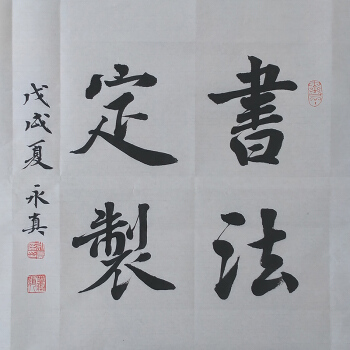 書法
定製
戊戌夏 永真